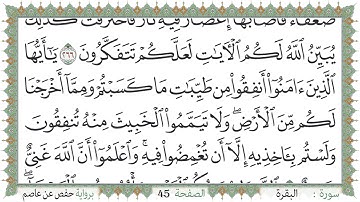 ضُعَفَاءُ فَأَصَابَهَا إِعْصَارٌ فِيهِ نَارٌ فَاحْتَرَقَتْ كَذَٰلِكَ
يُبَيِّنُ اللَّهُ لَكُمُ الْآيَاتِ لَعَلَّكُمْ تَتَفَكَّرُونَ ٢٦٦ يَا أَيُّهَا
الَّذِينَ ءَامَنُوا أَنفِقُوا مِن طَيِّبَاتِ مَا كَسَبْتُمْ وَمِمَّا أَخْرَجْنَا
لَكُم مِّنَ الْأَرْضِ ۖ وَلَا تَيَمَّمُوا الْخَبِيثَ مِنْهُ تُنفِقُونَ
وَلَسْتُم بِـَٔاخِذِيهِ إِلَّا أَن تُغْمِضُوا فِيهِ ۚ وَاعْلَمُوا أَنَّ اللَّهَ غَنِيٌّ
سورة : البقرة الصفحة 45 برواية حفص عن عاصم